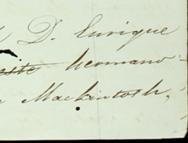 D. Enrique
hermano
Mackintosh,